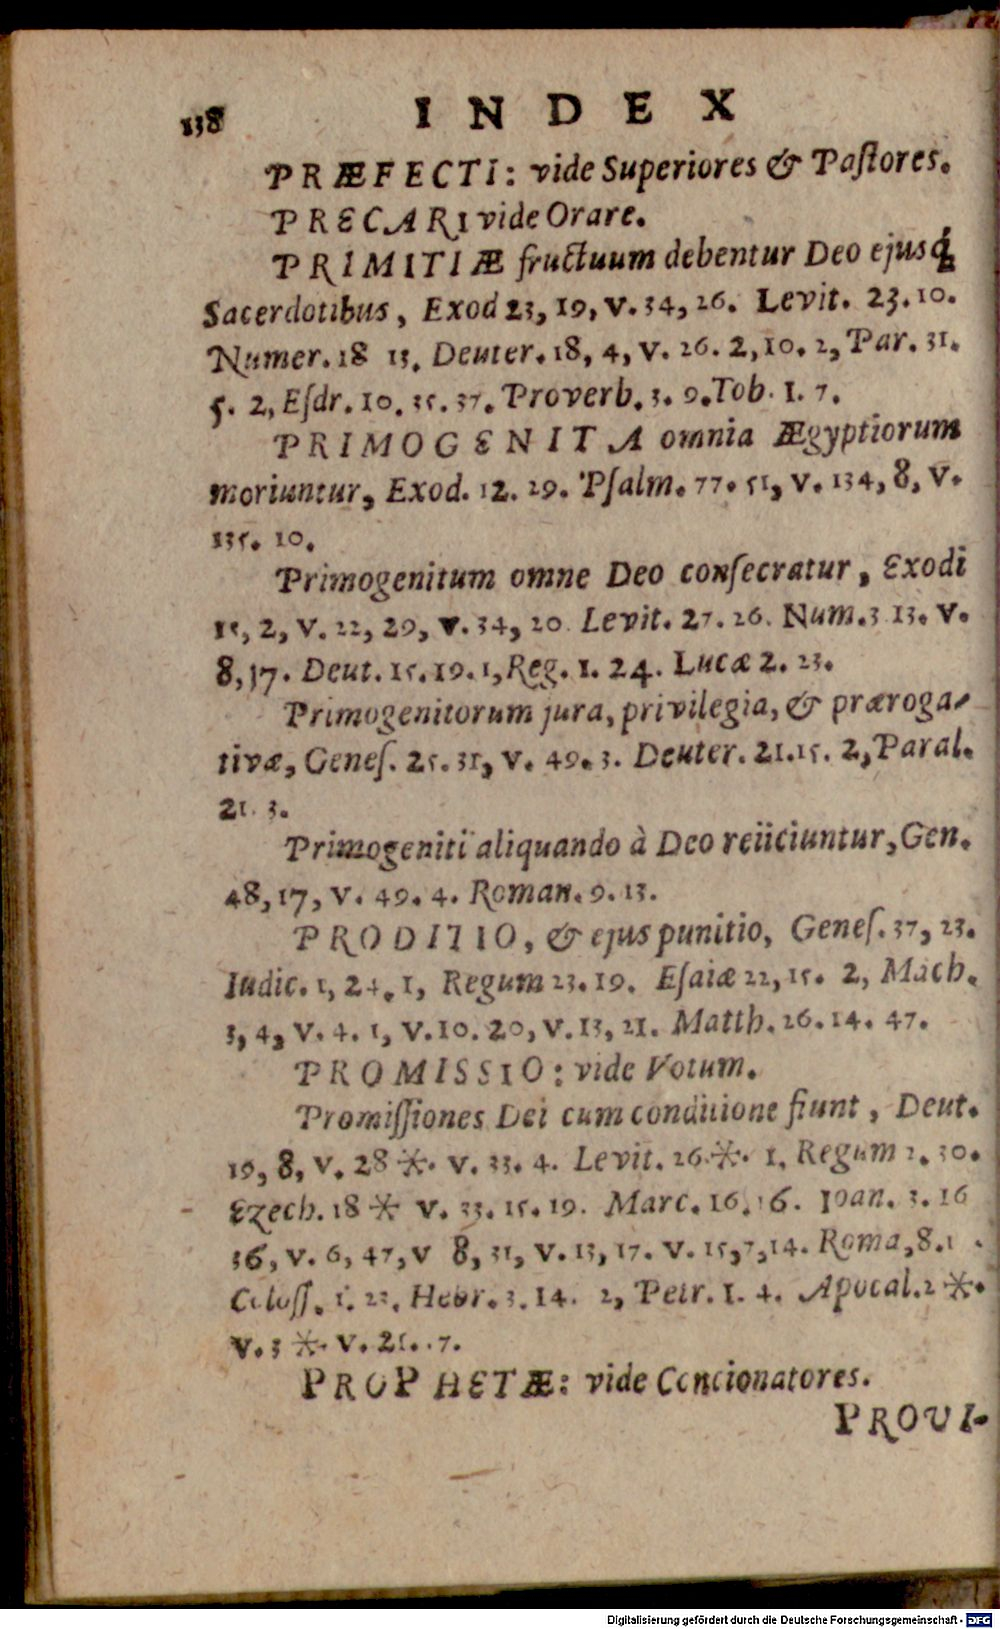 138 INDEX
PRÆFECTI: vide Superiores & Paſtores.
PRECARI vide Orare.
PRIMITIÆ fructuum debentur Deo ejusq́;
Sacerdotibus, Exod 23, 19, v. 34, 26. Levit. 23. 10.
Numer. 18 13. Deuter. 18, 4, v. 26. 2, 10. 2, Par. 31.
5. 2, Eſdr. 10. 35. 37. Proverb. 3. 9. Tob. 1. 7.
PRIMOGENITA omnia Ægyptiorum
moriuntur, Exod. 12. 29. Pſalm. 77. 51, v. 134, 8, v.
135. 10.
Primogenitum omne Deo conſecratur, Exodi
15, 2, v. 22, 29, v. 34, 20. Levit. 27. 26. Num. 3 13. v.
8, 17. Deut. 15. 19. 1, Reg. 1. 24. Lucæ 2. 23.
Primogenitorum jura, privilegia, & præroga-
tivæ, Geneſ. 25. 31, v. 49. 3. Deuter. 21. 15. 2, Paral.
21. 3.
Primogeniti aliquando à Deo reiiciuntur, Gen.
48, 17, v. 49. 4. Roman. 9. 13.
PRODITIO, & ejus punitio, Geneſ. 37, 23.
Iudic. 1, 24. 1, Regum 23. 19. Eſaiæ 22, 15. 2, Mach.
3, 4, v. 4. 1, v. 10. 20, v. 13, 21. Matth. 26. 14. 47.
PROMISSIO: vide Votum.
Promiſſiones Dei cum conditione fiunt, Deut.
19, 8, v. 28 * v. 33. 4. Levit. 26 *. 1. Regum 2. 30.
Ezech. 18 * v. 33. 15. 19. Marc. 16. 16. Ioan. 3. 16
36, v. 6, 47, v 8, 31, v. 13, 17. v. 15, 7, 14. Roma, 8.
Coloſſ. 1. 23. Hebr. 3. 14. 2, Petr. 1. 4. Apocal. 2 *.
v. 3 * v. 21. 7.
PROPHETÆ: vide Concionatores.
PROVI-
Digitalisierung gefördert durch die Deutsche Forschungsgemeinschaft - DFG